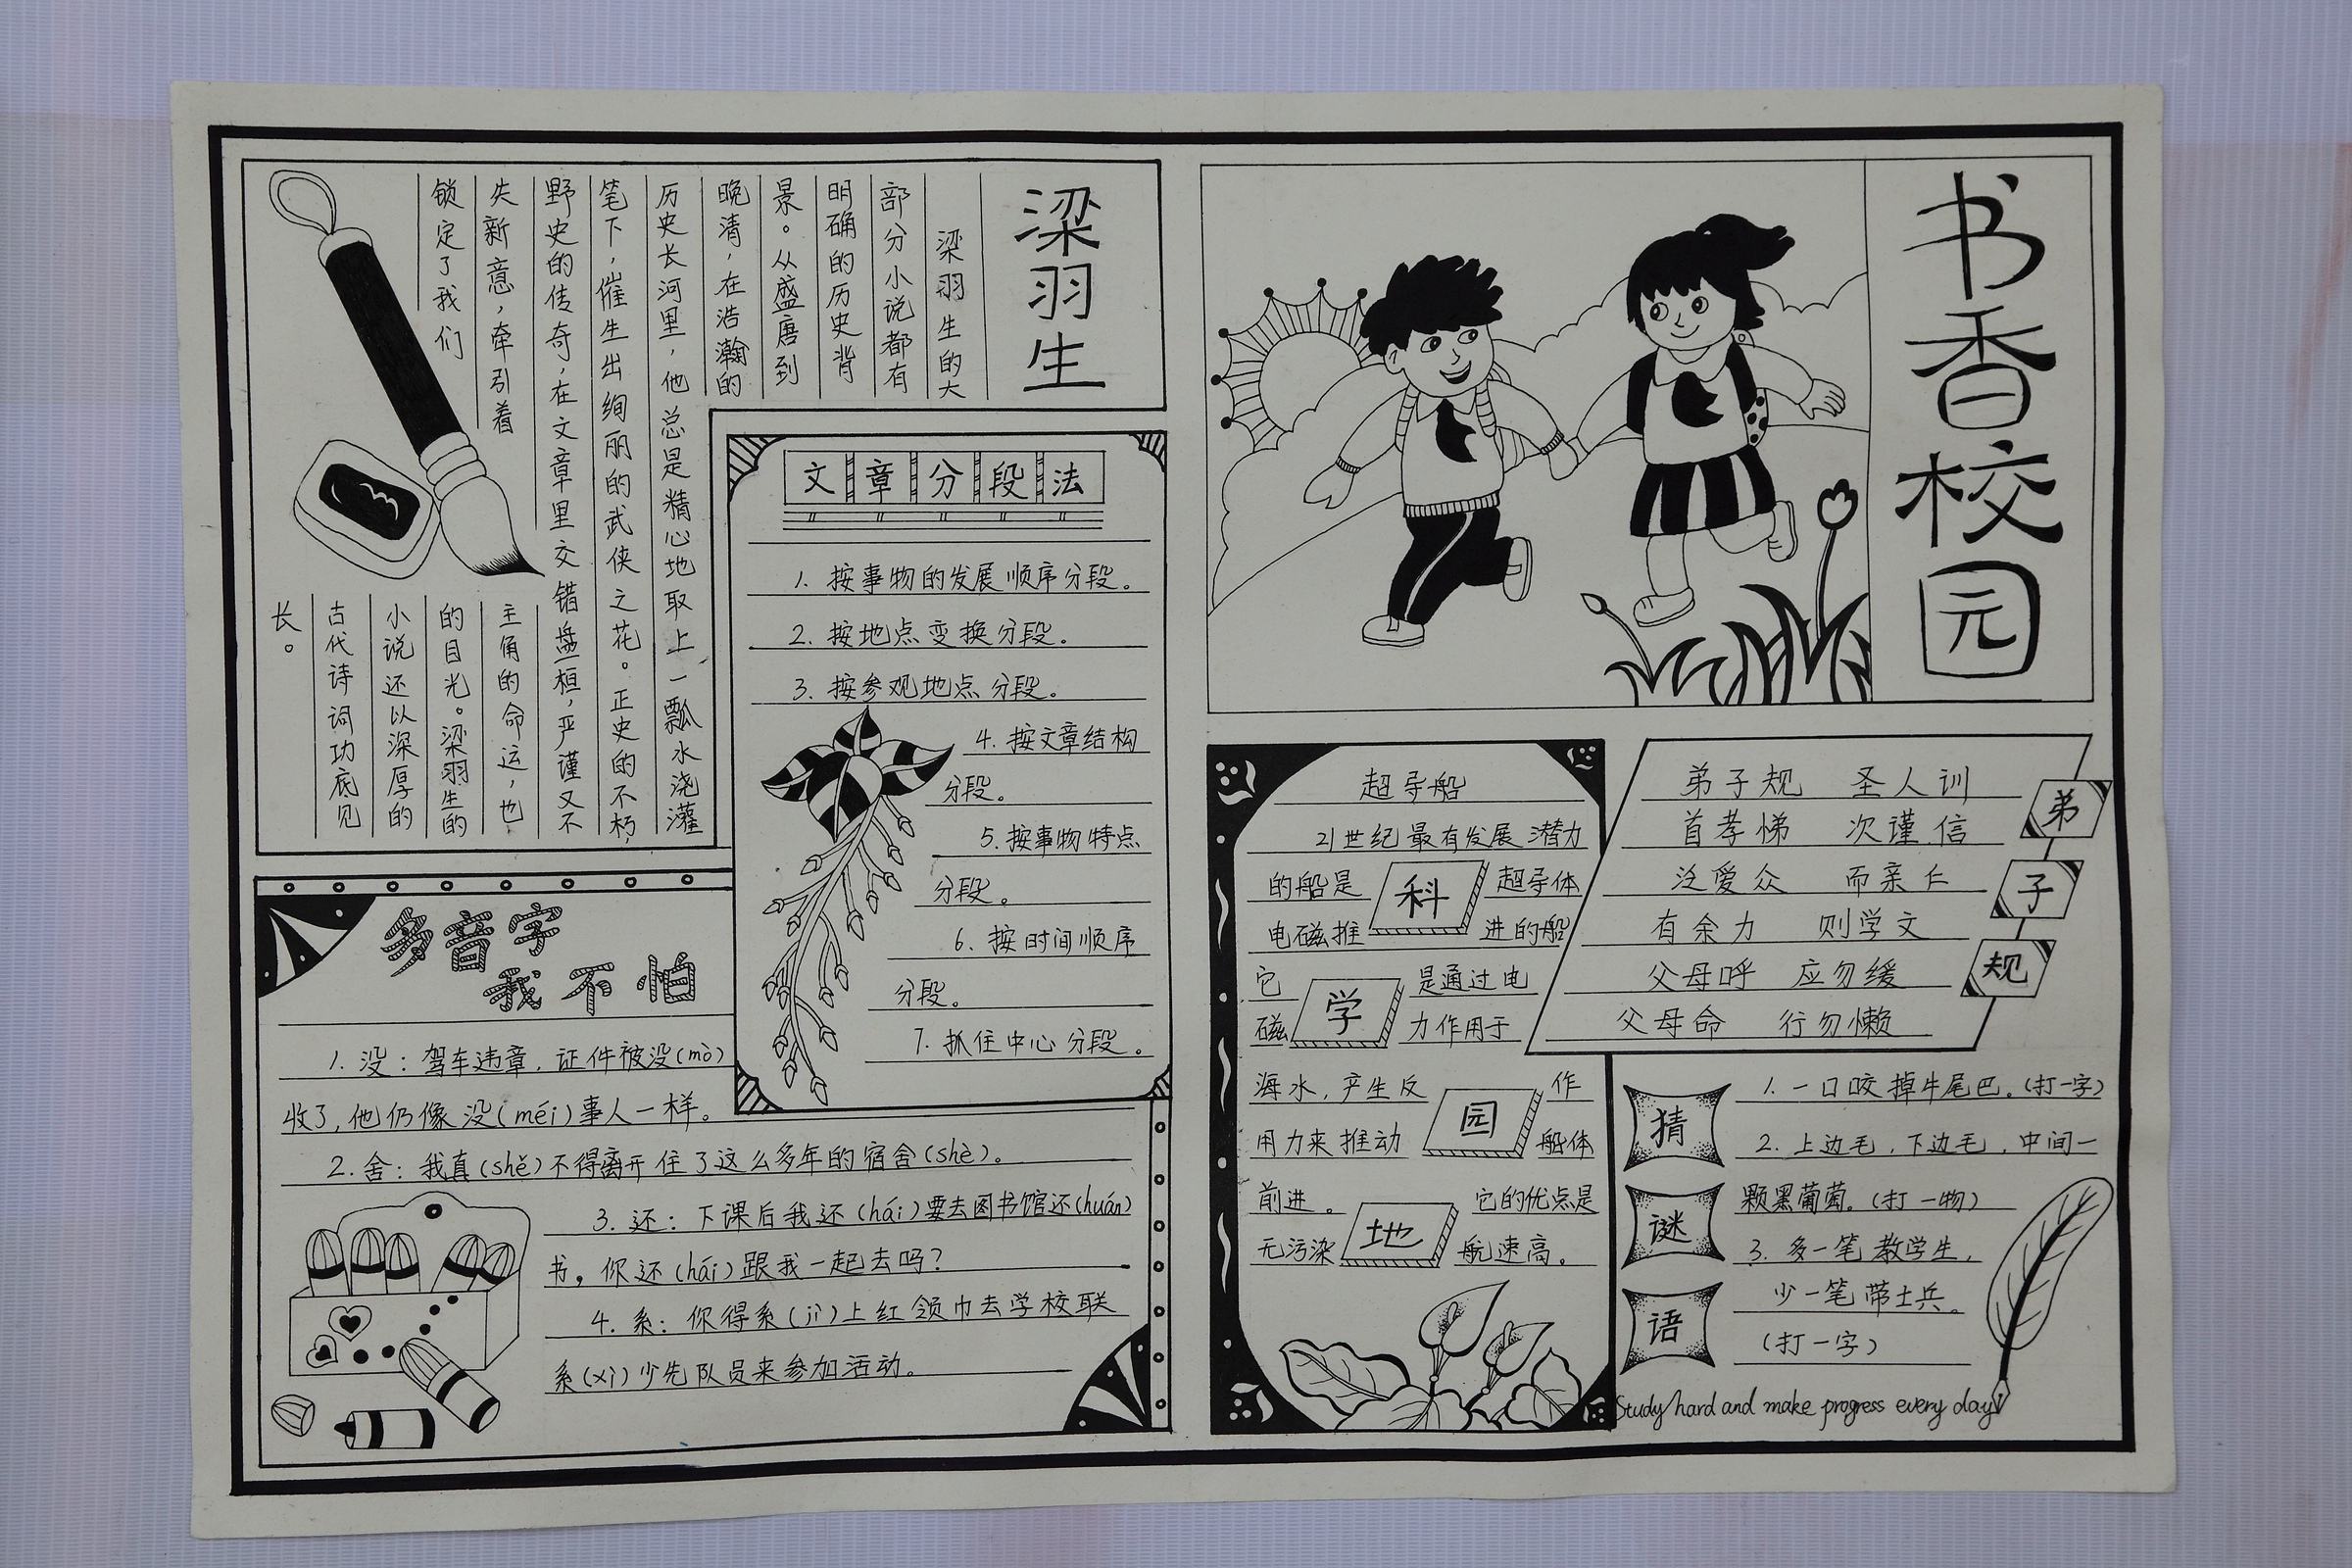 书香校园
梁羽生
梁羽生的大
部分小说都有
明确的历史背
景。从盛唐到
晚清，在浩瀚的
历史长河里，他总是精心地取上一瓢水浇灌
笔下，催生出绚丽的武侠之花。正史的不朽，
野史的传奇，在文章里交错盘桓，严谨又不
失新意，牵引着
主角的命运，也
锁定了我们
的目光。梁羽生的
小说还以深厚的
古代诗词功底见
长。
文章分段法
1. 按事物的发展顺序分段。
2. 按地点变换分段。
3. 按参观地点分段。
4. 按文章结构
分段。
5. 按事物特点
分段。
6. 按时间顺序
分段。
7. 抓住中心分段。
多音字
我不怕
1. 没：驾车违章，证件被没(mò)
收了，他仍像没(méi)事人一样。
2. 舍：我真(shě)不得离开住了这么多年的宿舍(shè)。
3. 还：下课后我还(hái)要去图书馆还(huán)
书，你还(hái)跟我一起去吗？
4. 系：你得系(jì)上红领巾去学校联
系(xì)少先队员来参加活动。
科学园地
超导船
21世纪最有发展潜力
的船是超导体
电磁推进的船
它是通过电
磁力作用于
海水，产生反作
用力来推动船体
前进。它的优点是
无污染航速高。
弟子规
弟子规 圣人训
首孝悌 次谨信
泛爱众 而亲仁
有余力 则学文
父母呼 应勿缓
父母命 行勿懒
猜谜语
1. 一口咬掉牛尾巴。(打一字)
2. 上边毛，下边毛，中间一
颗黑葡萄。(打一物)
3. 多一笔教学生，
少一笔带士兵。
(打一字)
Study hard and make progress every day!